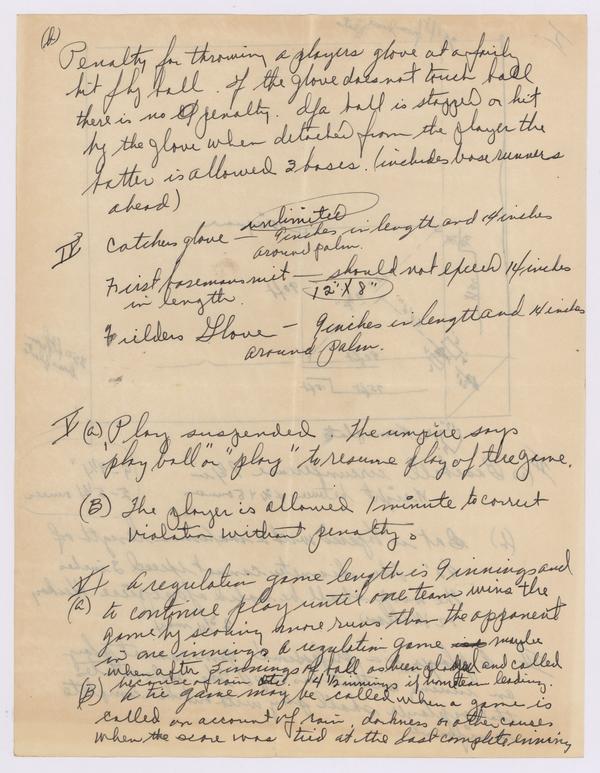 (b)
Penalty for throwing a players glove at a fairly
hit fly ball. If the glove does not touch ball
there is no penalty. If a ball is stopped or hit
by the glove when detached from the player the
batter is allowed 3 bases. (includes base runners
ahead)
IV Catchers glove — unlimited
9 inches in length and 14 inches
around palm.
First basemans mit — should not exceed 14 inches
in length. 12" X 8"
Fielders Glove — 9 inches in length and 14 inches
around palm.
V (a) Play suspended. The umpire says
"play ball" or "play" to resume play of the game.
(B) The player is allowed 1 minute to correct
violation without penalty.
VI A regulation game length is 9 innings and
(a) to continue play until one team wins the
game by scoring more runs than the opponent
in one innings a regulation game may be
when after 5 innings of ball as been played and called
because of rain 4 1/2 innings if home team leading.
(B) A tie game may be called when a game is
called on account of rain, darkness or other causes
when the score was tied at the last complete inning